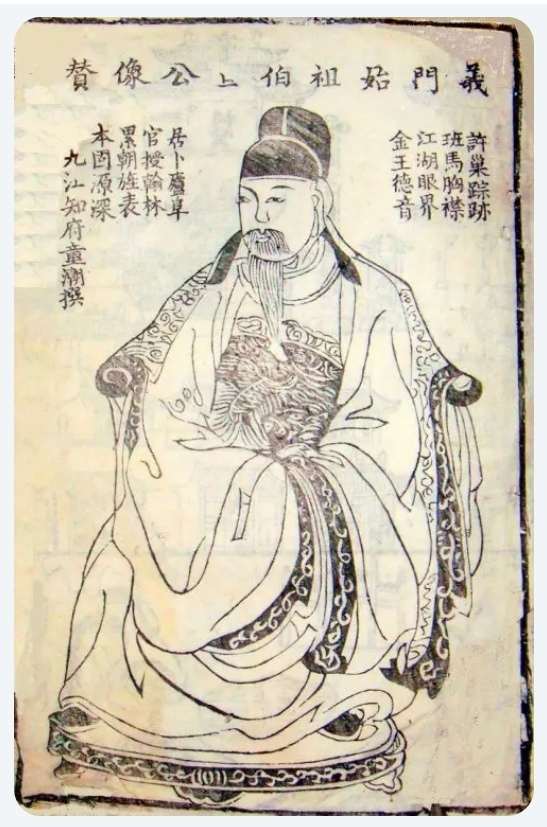 義門始祖伯上公像贊
許巢踪跡
班馬胸襟
江湖眼界
金王德音
居卜廬阜
官授翰林
累朝旌表
本固源深
九江知府童潮撰